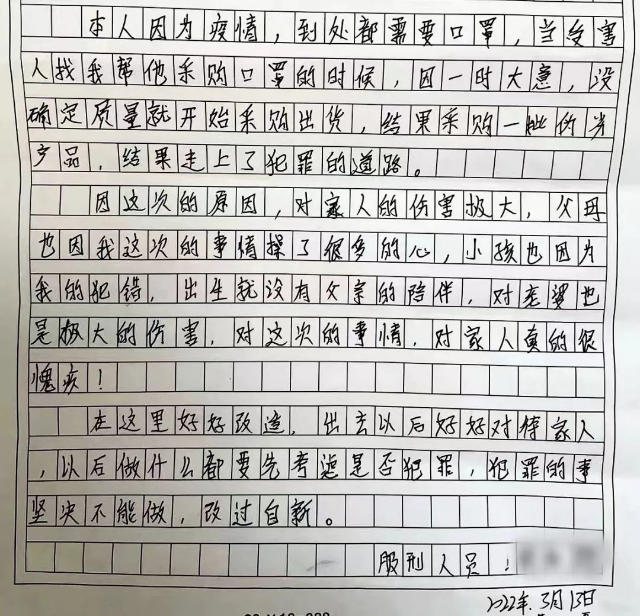 本人因为疫情，到处都需要口罩，当受害
人找我帮他采购口罩的时候，因一时大意，没
确定质量就开始采购出货，结果采购一批伪劣
产品，结果走上了犯罪的道路。
因这次的原因，对家人的伤害极大，父母
也因我这次的事情操了很多的心，小孩也因为
我的犯错，出生就没有父亲的陪伴，对老婆也
是极大的伤害，对这次的事情，对家人真的很
愧疚！
在这里好好改造，出去以后好好对待家人
，以后做什么都要先考虑是否犯罪，犯罪的事
坚决不能做，改过自新。
服刑人员：
2022年3月13日